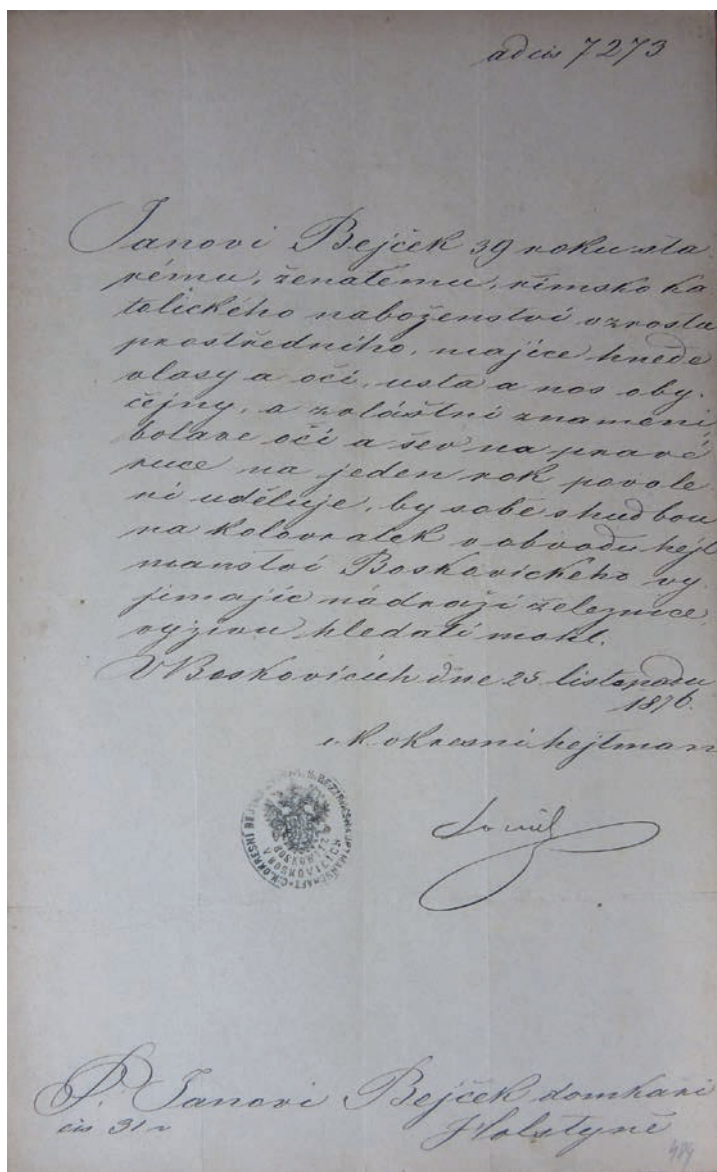 ad čis 7273
Janovi Bejček 39 roku sta
rému, ženatemu, římsko ka
tolického naboženství vzrostu
prostředního, majíce hnede
vlasy a oči, usta a nos oby.
čejny, a zvláštní znamení
bolave oči a šev na pravé
ruce na jeden rok povole
ní uděluje, by sobě s hudbou
na kolovratek v obvodu hejt
manství Boskovického vy
jimajíc nádraží železnice,
vyživu hledati mohl.
V Boskovicích dne 25 listopadu
1876.
c. k. okresní hejtman
P. Janovi Bejček domkaři
čis 31 v Holstyně
484